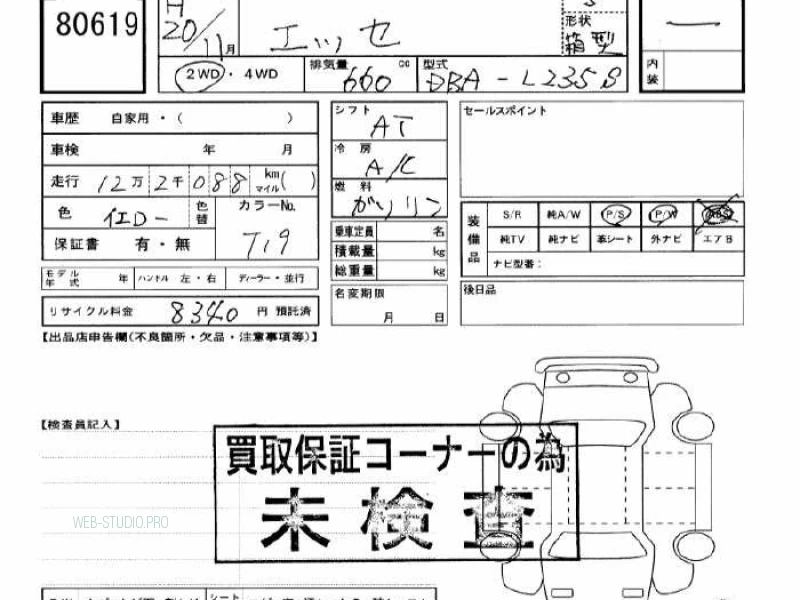 80619
H
20/11月
エッセ
形状
箱型
内装
2WD・4WD
排気量 660 cc
型式 DBA-L235S
車歴 自家用・( )
車検 年 月
走行 12万2千088 km マイル( )
色 イエロー 色替
カラーNo. T19
保証書 有・無
モデル年式 年 ハンドル 左・右 ディーラー・並行
リサイクル料金 8340 円 預託済
シフト AT
冷房 A/C
燃料 ガソリン
乗車定員 名
積載量 kg
総重量 kg
名変期限
月 日
セールスポイント
装備品
S/R 純A/W P/S P/W ABS
純TV 純ナビ 革シート 外ナビ エアB
ナビ型番:
後日品
【出品店申告欄(不良箇所・欠品・注意事項等)】
【検査員記入】
買取保証コーナーの為
未検査
WEB-STUDIO.PRO